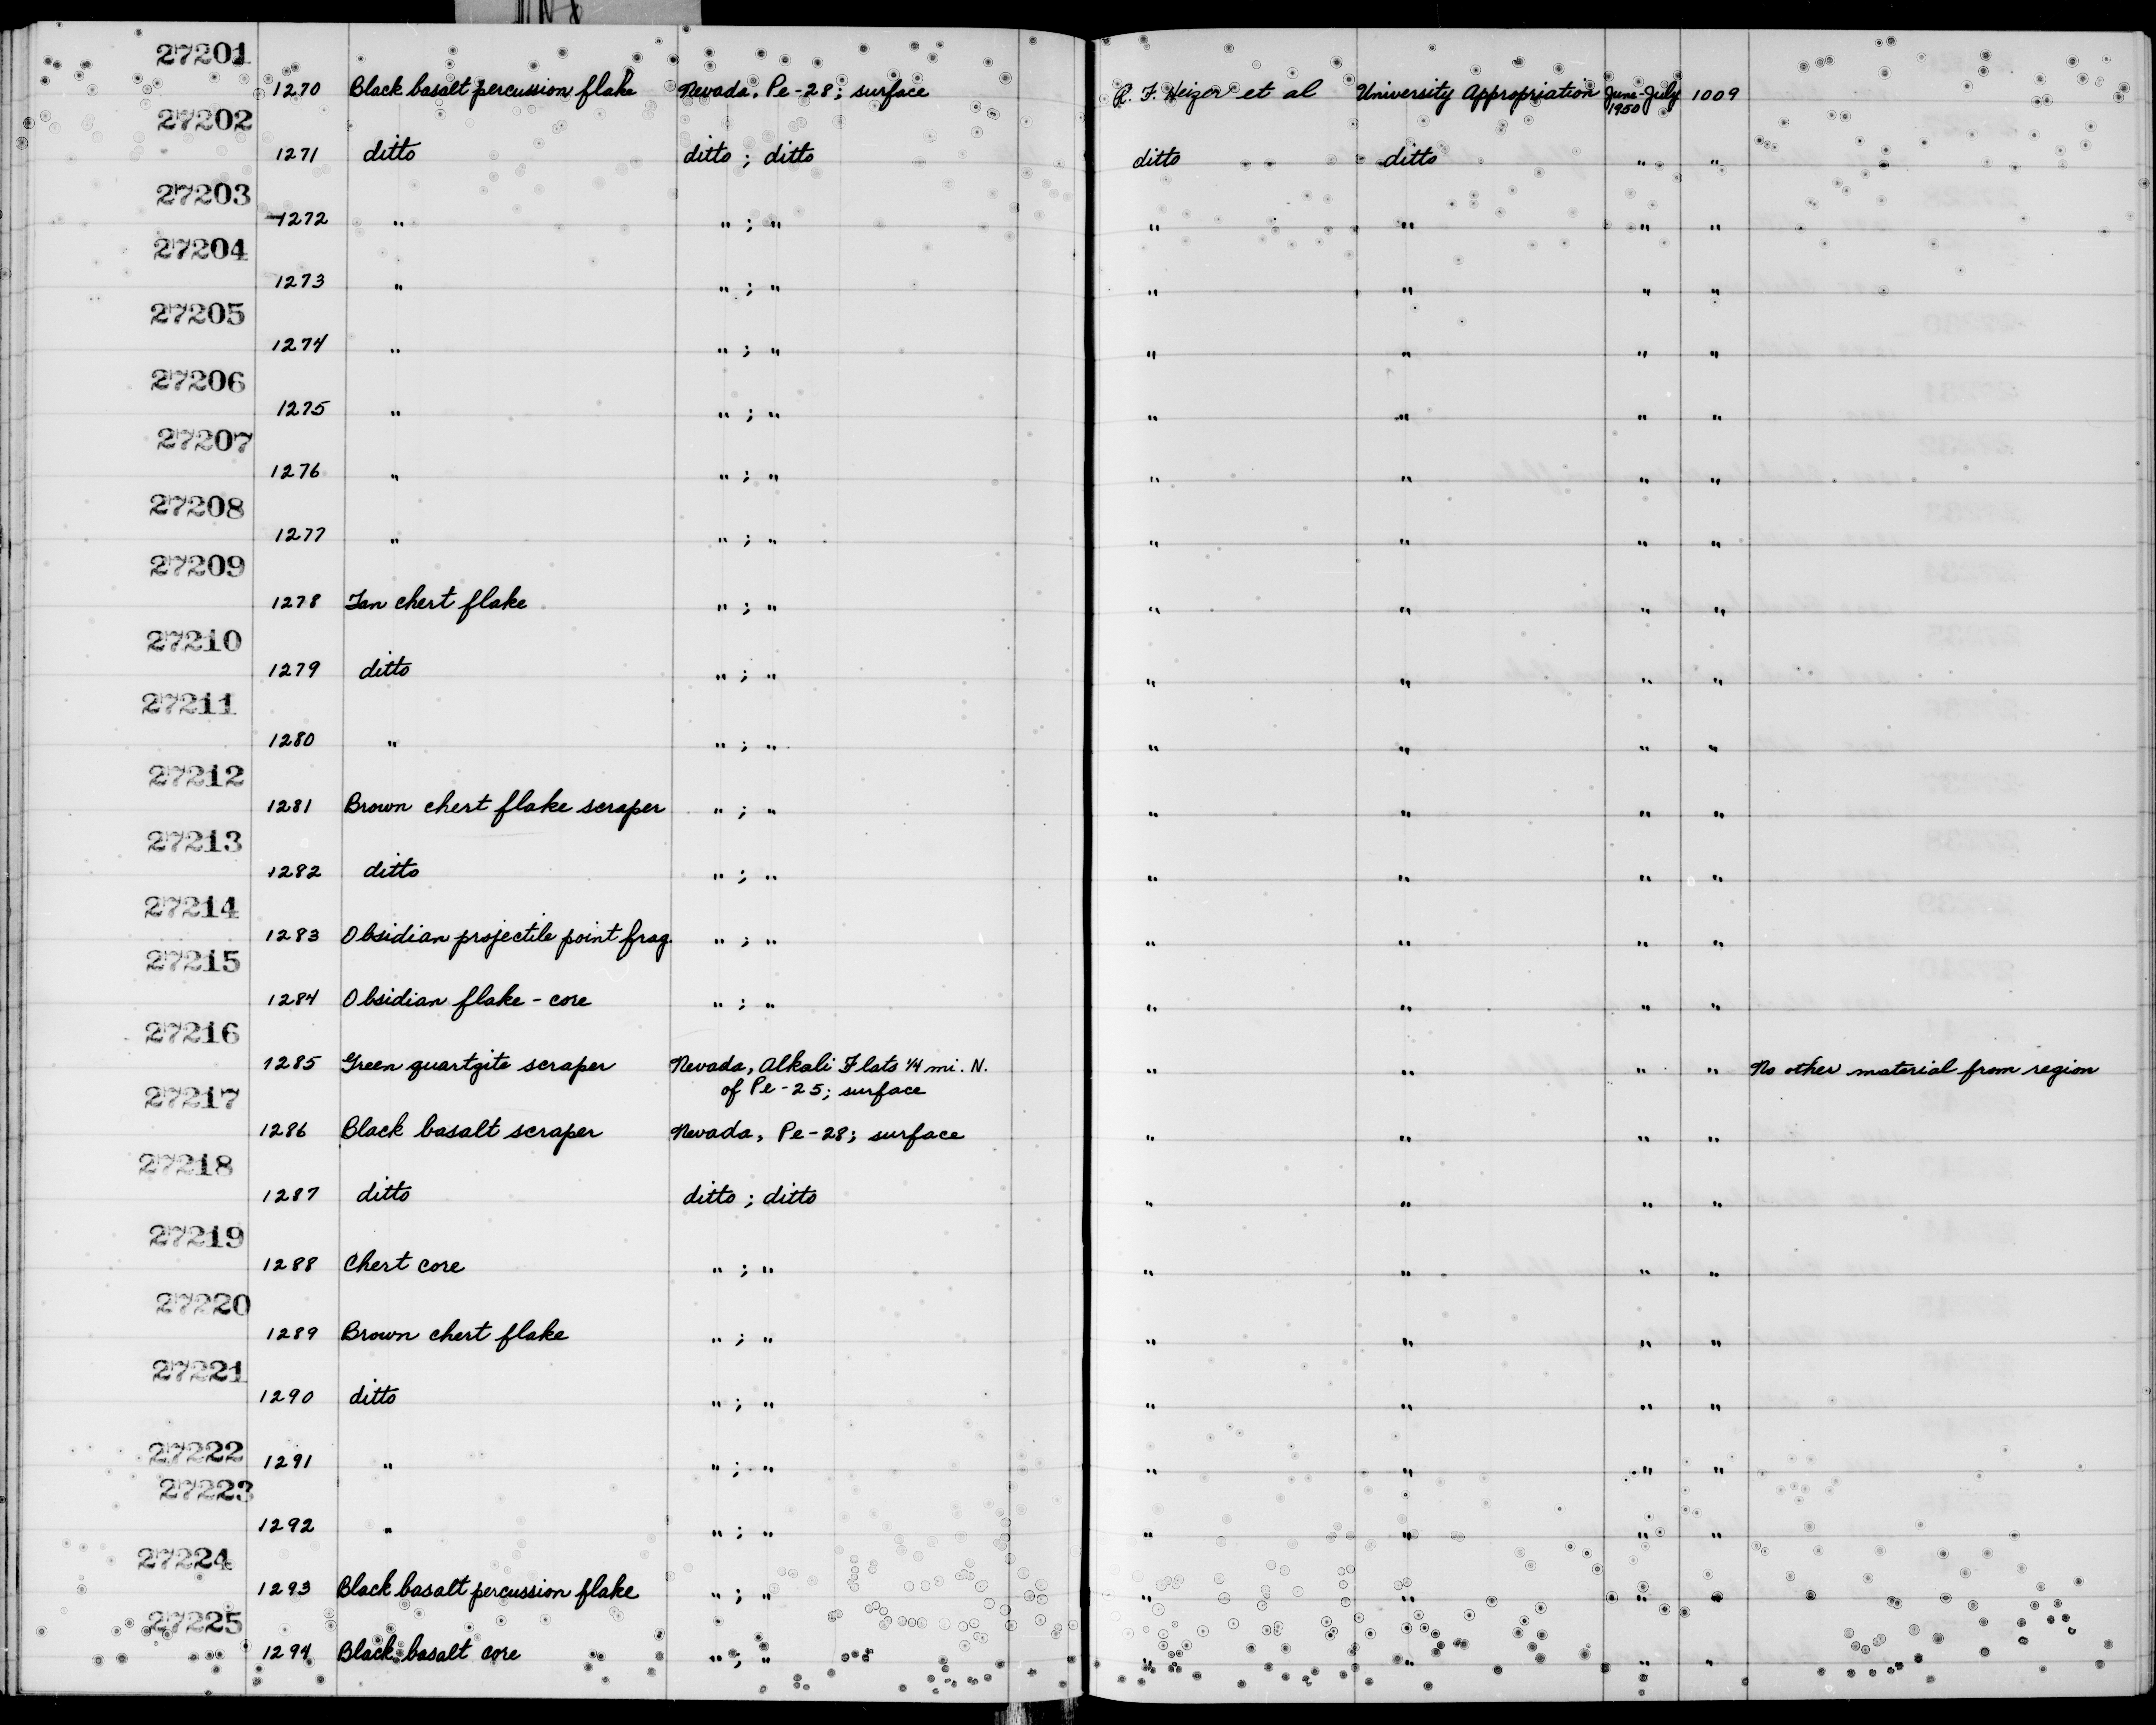 27201
1270 Black basalt percussion flake Nevada, Pe-28; surface R. F. Heizer et al University Appropriation June-July 1950 1009
27202
1271 ditto ditto ; ditto ditto ditto " "
27203
1272 " " ; " " " " "
27204
1273 " " ; " " " " "
27205
1274 " " ; " " " " "
27206
1275 " " ; " " " " "
27207
1276 " " ; " " " " "
27208
1277 " " ; " " " " "
27209
1278 Tan chert flake " ; " " " " "
27210
1279 ditto " ; " " " " "
27211
1280 " " ; " " " " "
27212
1281 Brown chert flake scraper " ; " " " " "
27213
1282 ditto " ; " " " " "
27214
1283 Obsidian projectile point frag. " ; " " " " "
27215
1284 Obsidian flake - core " ; " " " " "
27216
1285 Green quartzite scraper Nevada, Alkali Flats 1/4 mi. N. " " " " No other material from region
of Pe-25; surface
27217
1286 Black basalt scraper Nevada, Pe-28; surface " " " "
27218
1287 ditto ditto ; ditto " " " "
27219
1288 Chert core " ; " " " " "
27220
1289 Brown chert flake " ; " " " " "
27221
1290 ditto " ; " " " " "
27222
1291 " " ; " " " " "
27223
1292 " " ; " " " " "
27224
1293 Black basalt percussion flake " ; " " " " "
27225
1294 Black basalt core " ; " " " " "